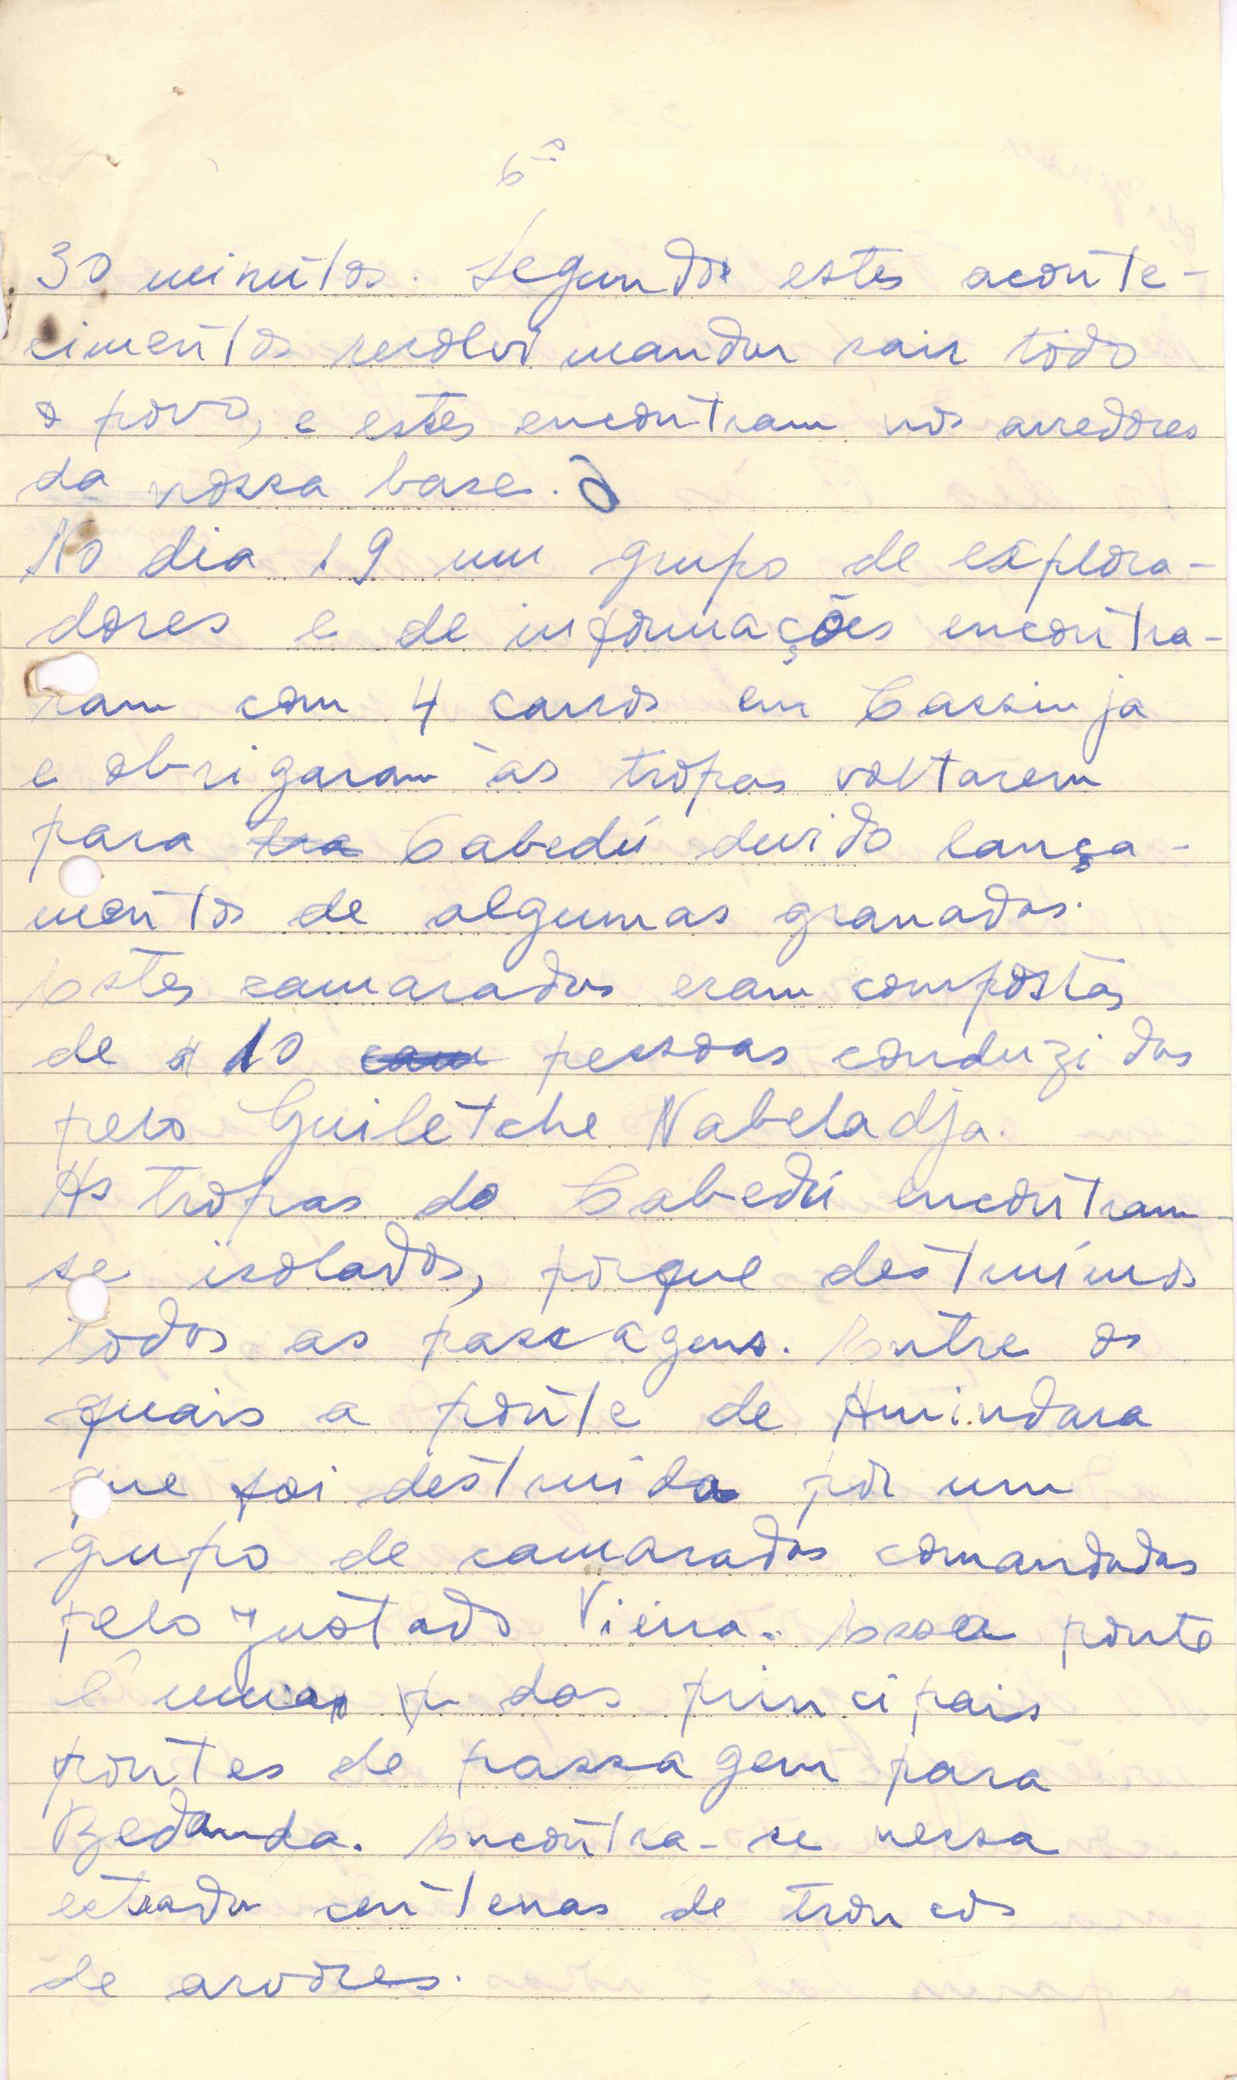 6º
30 minutos. Segundo estes aconte-
cimentos resolvi mandar sair todo
o povo, e estes encontram nos arredores
da nossa base.
No dia 19 um grupo de explora-
dores e de informações encontra-
ram com 4 carros em Cassinja
e obrigaram às tropas voltarem
para tra Cabedú duvido lança-
mentos de algumas granadas.
Estes camaradas eram compostas
de 10 cam pessoas conduzidas
pelo Guiletche Nabeladja.
As tropas do Cabedú encontram-
se isolados, porque destruímos
todos as passagens. Entre os
quais a ponte de Amindara
que foi destruida por um
grupo de camaradas comandadas
pelo Justado Vieira. Essa ponte
é uma p das principais
pontes de passagem para
Bedanda. Encontra-se nessa
estrada centenas de troncos
de arvores.